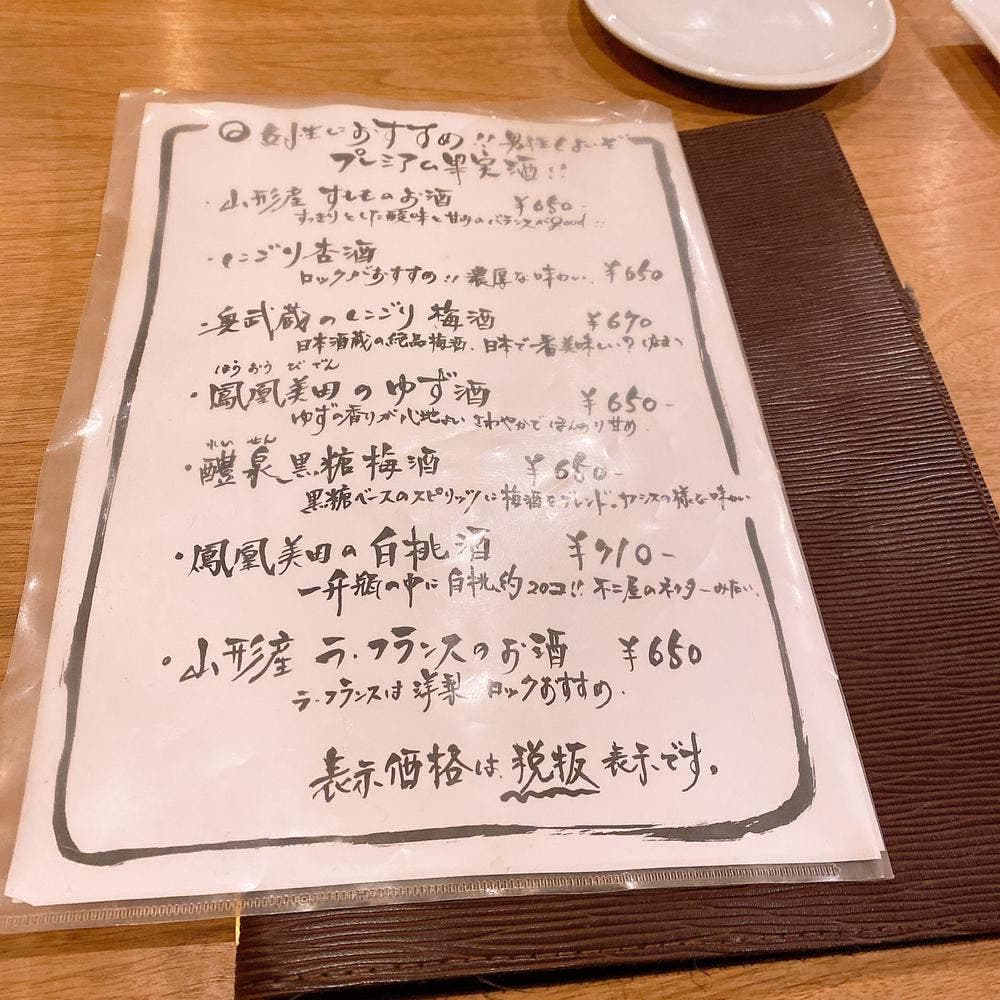 女性におすすめ!! 男性もよいぞ
プレミアム果実酒!!
・山形産 すもものお酒 ¥650-
すっきりとした酸味と甘みのバランスがgood!!
・にごり杏酒
ロックがおすすめ!! 濃厚な味わい。 ¥650
・奥武蔵のにごり梅酒 ¥670
日本酒蔵の絶品梅酒。日本で一番美味しい?
ほうおう びでん
・鳳凰美田のゆず酒 ¥650-
ゆずの香りが心地よい さわやかでほんのり甘め。
れいせん
・醴泉黒糖梅酒 ¥650-
黒糖ベースのスピリッツに梅酒をブレンド。カシスの様な味わい
・鳳凰美田の白桃酒 ¥710-
一升瓶の中に白桃約20コ!! 不二屋のネクターみたい。
・山形産 ラ・フランスのお酒 ¥650
ラ・フランスは洋梨 ロックおすすめ。
表示価格は、税抜表示です。